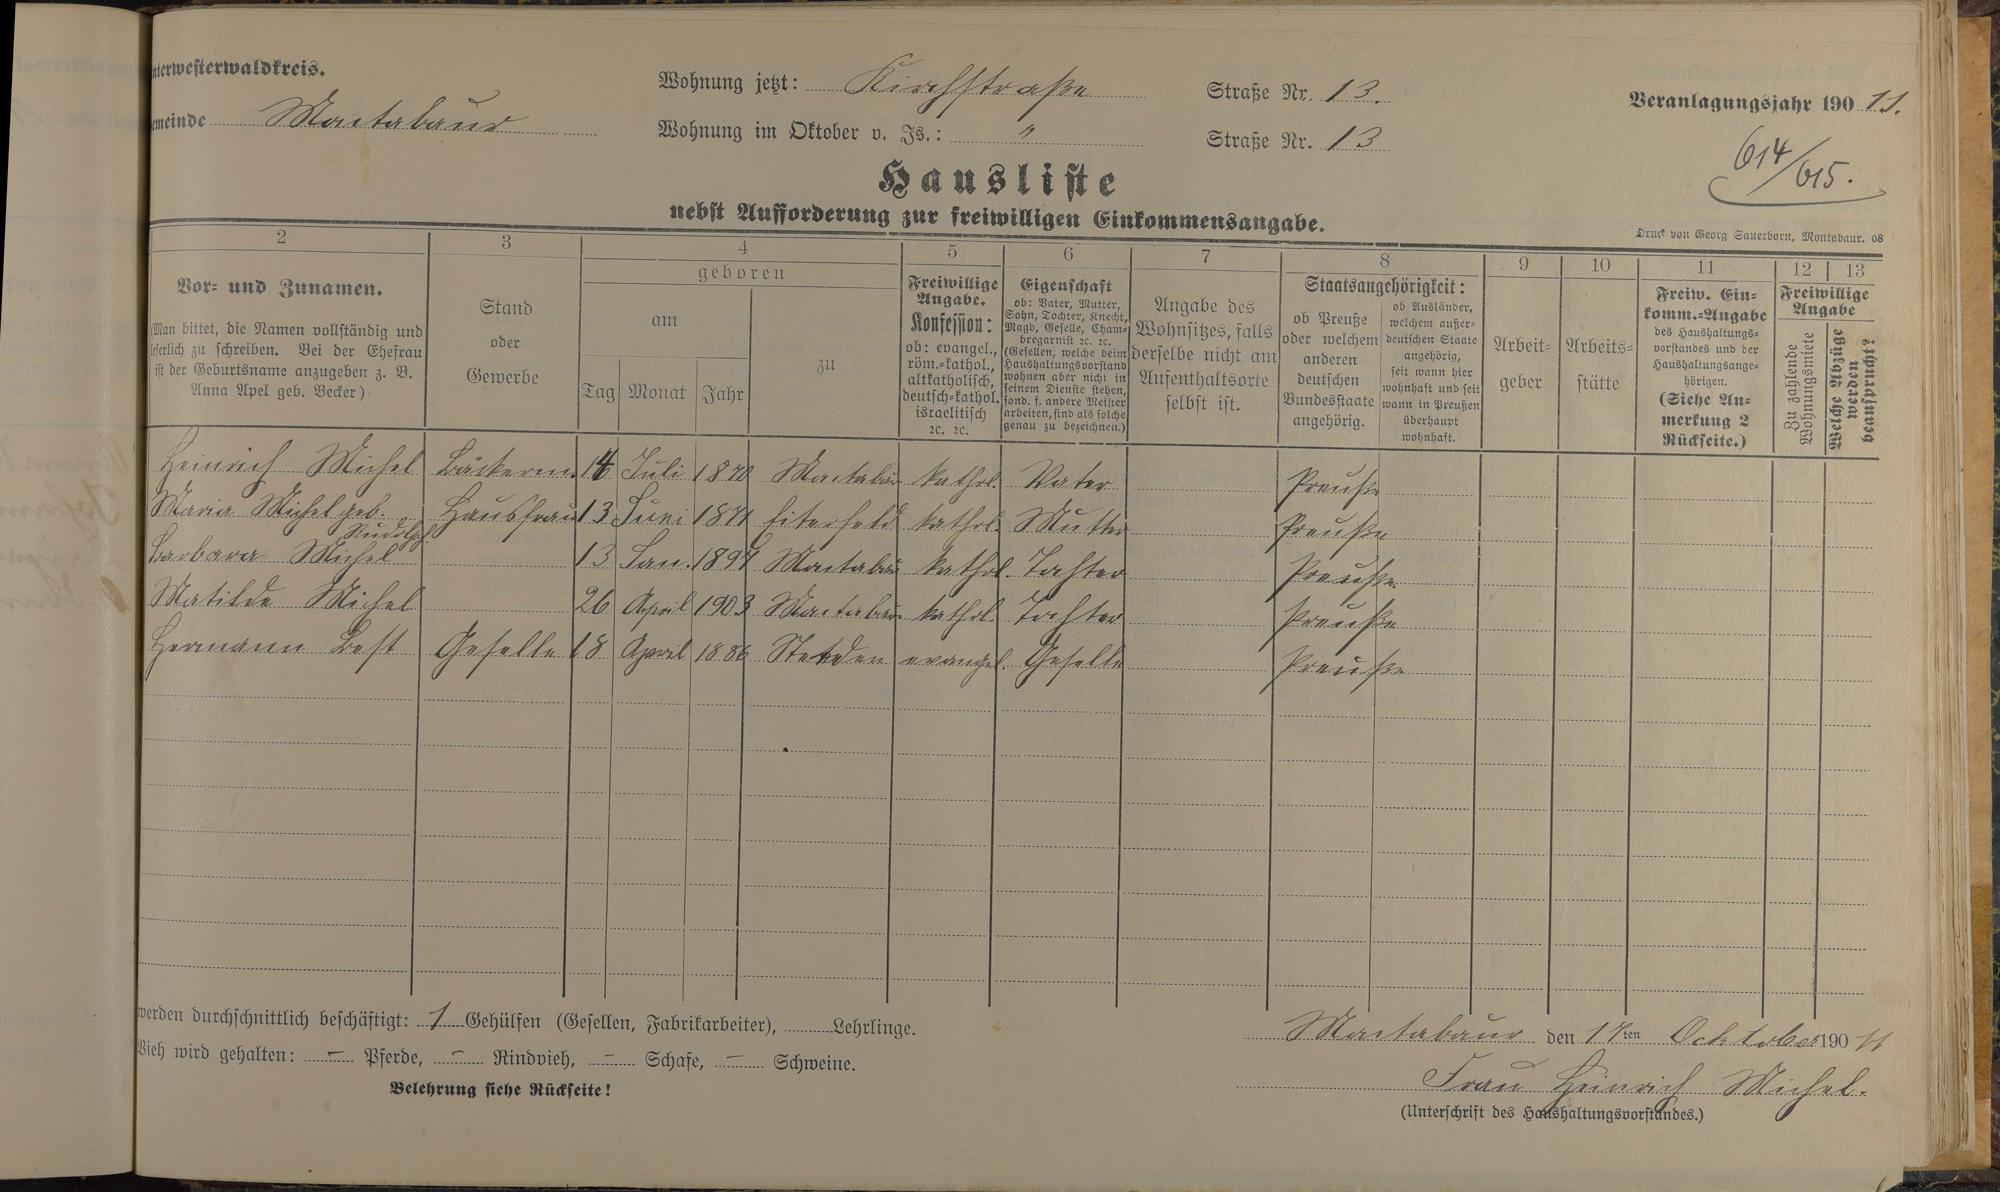 nterwesterwaldkreis.
emeinde Montabaur
Wohnung jetzt: Kirchstraße Straße Nr. 13.
Wohnung im Oktober v. Js.: " Straße Nr. 13
Veranlagungsjahr 190 11.
614/615.
Hausliste
nebst Aufforderung zur freiwilligen Einkommensangabe.
Druck von Georg Sauerborn, Montabaur. 08
2 3 4 5 6 7 8 9 10 11 12 13
Vor- und Zunamen.
(Man bittet, die Namen vollständig und
leserlich zu schreiben. Bei der Ehefrau
ist der Geburtsname anzugeben z. B.
Anna Apel geb. Becker)
Stand
oder
Gewerbe
geboren
am
Tag Monat Jahr
zu
Freiwillige
Angabe.
Konfession:
ob: evangel.,
röm.-kathol.,
altkatholisch,
deutsch-kathol.
israelitisch
ꝛc. ꝛc.
Eigenschaft
ob: Vater, Mutter,
Sohn, Tochter, Knecht,
Magd, Geselle, Cham-
bregarnist ꝛc. ꝛc.
(Gesellen, welche beim
Haushaltungsvorstand
wohnen aber nicht in
seinem Dienste stehen,
sond. f. andere Meister
arbeiten, sind als solche
genau zu bezeichnen.)
Angabe des
Wohnsitzes, falls
derselbe nicht am
Aufenthaltsorte
selbst ist.
Staatsangehörigkeit:
ob Preuße
oder welchem
anderen
deutschen
Bundesstaate
angehörig.
ob Ausländer,
welchem außer-
deutschen Staate
angehörig,
seit wann hier
wohnhaft und seit
wann in Preußen
überhaupt
wohnhaft.
Arbeit-
geber
Arbeits-
stätte
Freiw. Ein-
komm.-Angabe
des Haushaltungs-
vorstandes und der
Haushaltungsange-
hörigen.
(Siehe An-
merkung 2
Rückseite.)
Freiwillige
Angabe
Zu zahlende
Wohnungsmiete
Welche Abzüge
werden
beansprucht?
Heinrich Michel Bäckerm. 14 Juli 1870 Montabaur kathol. Vater Preuße
Maria Michel geb. Hausfrau 13 Juni 1871 Eiterfeld kathol. Mutter Preuße
Rudolph
Barbara Michel 13 Jan. 1897 Montabaur kathol. Tochter Preuße
Matilde Michel 26 April 1903 Montabaur kathol. Tochter Preuße
Hermann Best Geselle 18 April 1886 Stetden evangel. Geselle Preuße
werden durchschnittlich beschäftigt: 1 Gehülfen (Gesellen, Fabrikarbeiter), Lehrlinge.
Vieh wird gehalten: – Pferde, – Rindvieh, – Schafe, – Schweine.
Belehrung siehe Rückseite!
Montabaur den 17ten Ocktober 190 11
Frau Heinrich Michel.
(Unterschrift des Haushaltungsvorstandes.)